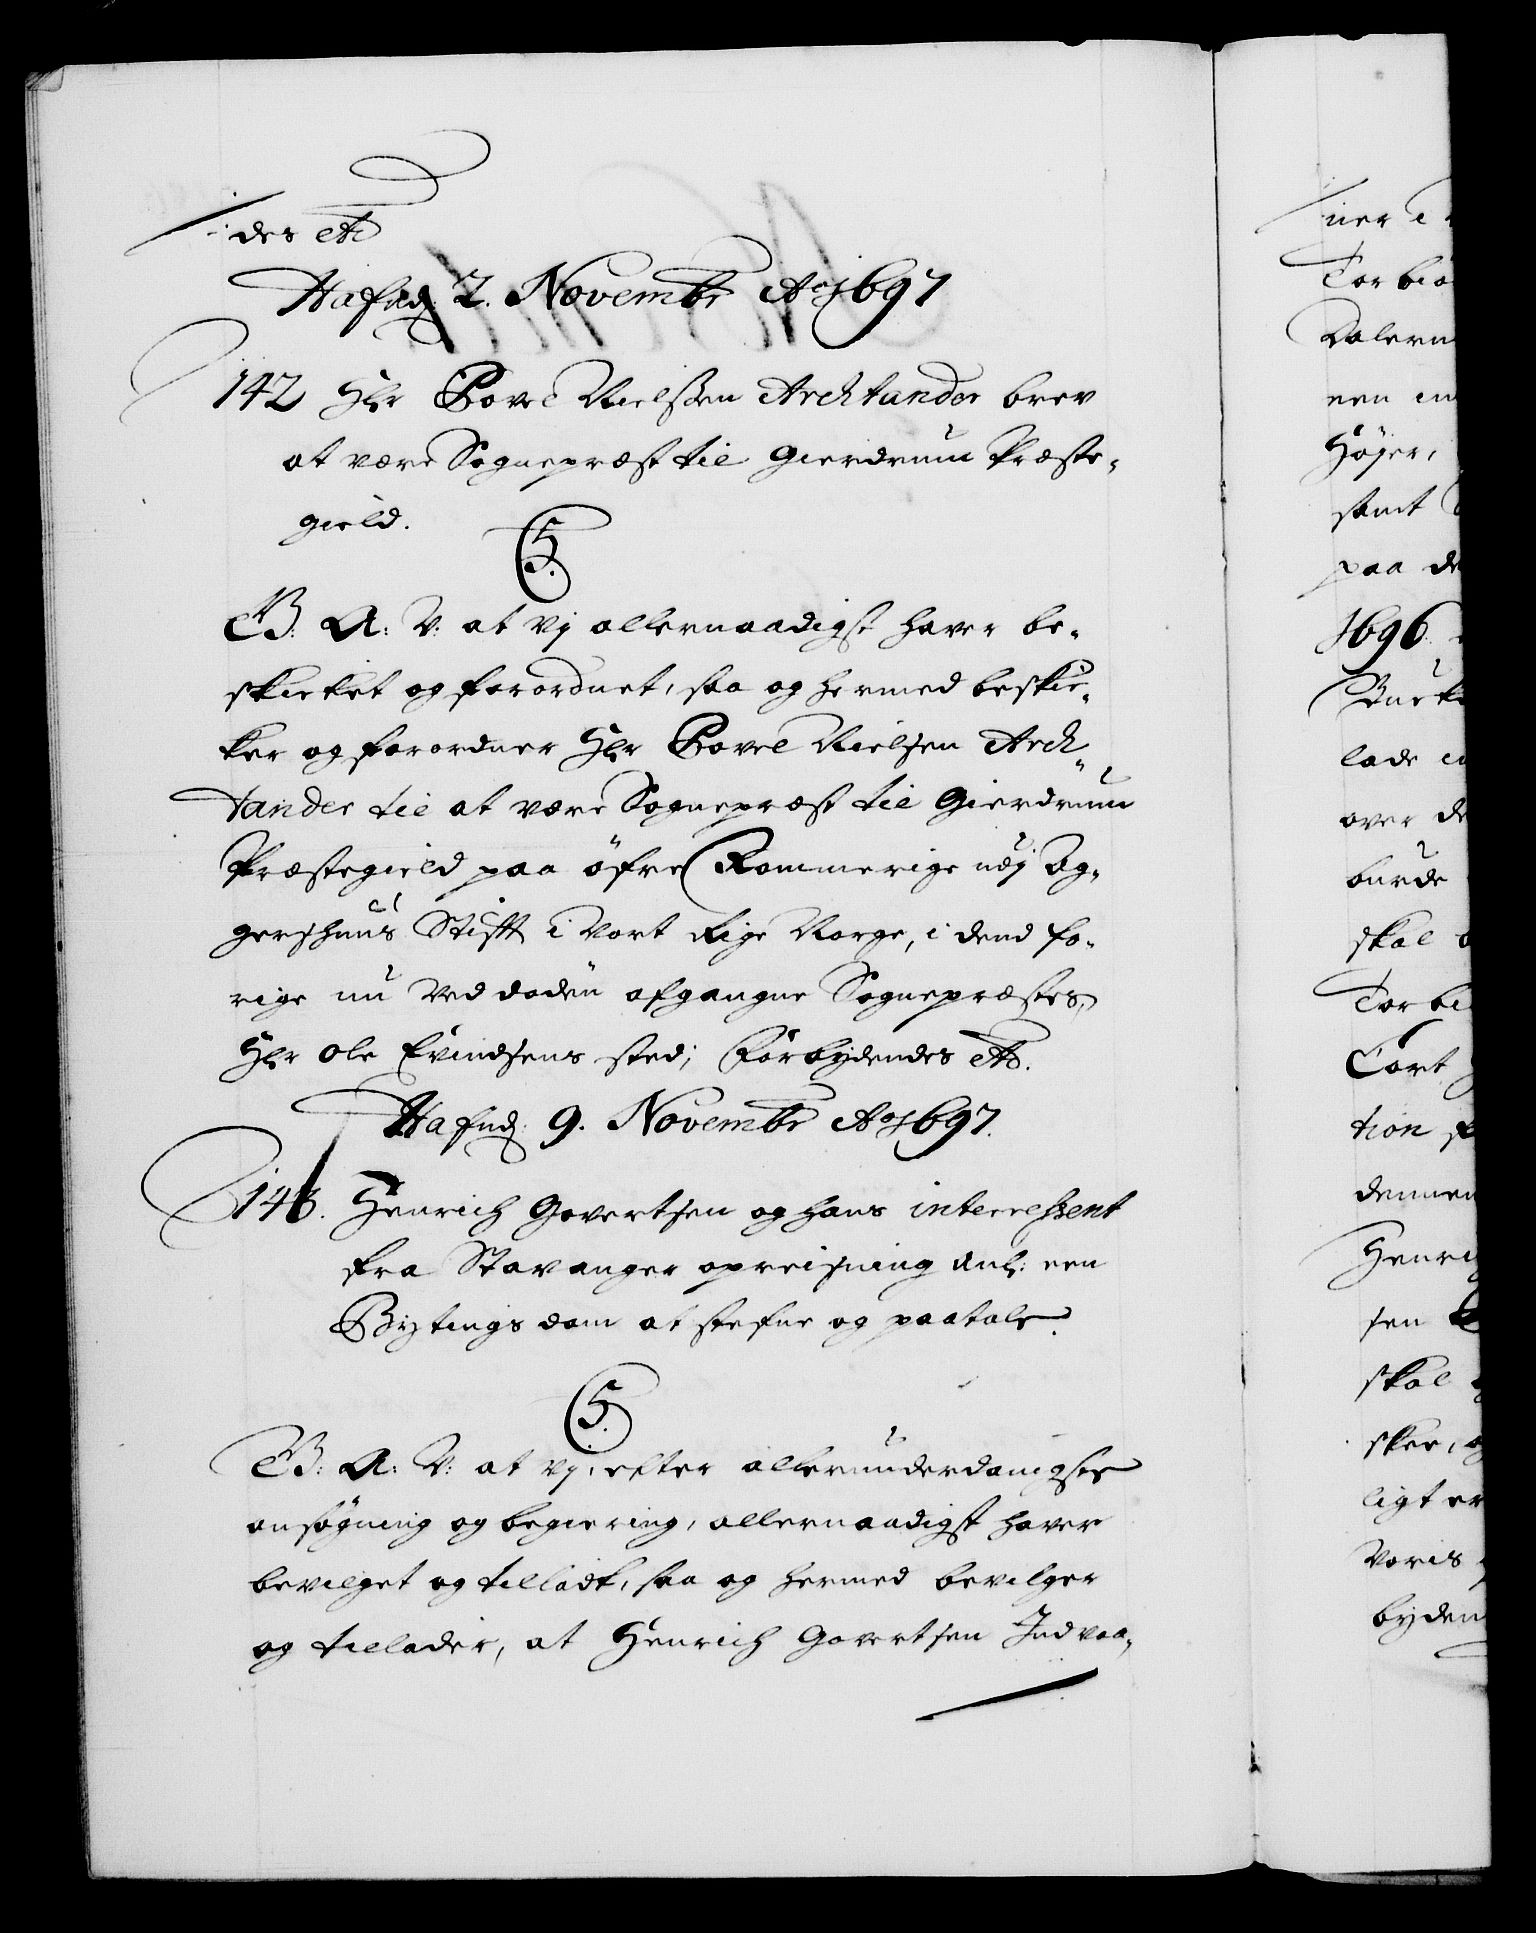 des etc
Hafnæ: 2. Novembr Ao 1697
142 Hr Povel Nielssen Archtander brev
at være Sognepræst til Gierdrum Præste-
gield.
C5.
G: A: V: at Vj allernaadigst haver be-
skicket og forordnet, saa og hermed beskic-
ker og forordner Hr Povel Nielsen Arch-
tander til at være Sognepræst til Gierdrum
Præstegield paa öfre Rommerige udj Ag-
gershuus Stift i Vort Rige Norge, i dend fo-
rige nu ved döden afgangne Sognepræstes,
Hr Ole Evindsens sted; Forbydendes etc.
Hafnæ: 9. Novembr Ao 1697.
143. Henrich Govertsen og hans interressent
fra Stavanger opreisning anl: een
Bytings dom at stefne og paatale.
C5.
G: A: V: at Vj, efter allerunderdanigste
ansøgning og begiering, allernaadigst haver
bevilget og tilladt, saa og hermed bevilger
og tillader, at Henrich Govertsen Indvaa-
ner i
Torbiö
Dalern
een in
Höjer,
samt
paa de
1696
lade in
over de
burde
skal
Torbi
Cort
tion
dennem
Henri
sen
skal
skee, og
ligt er
Voris
byden